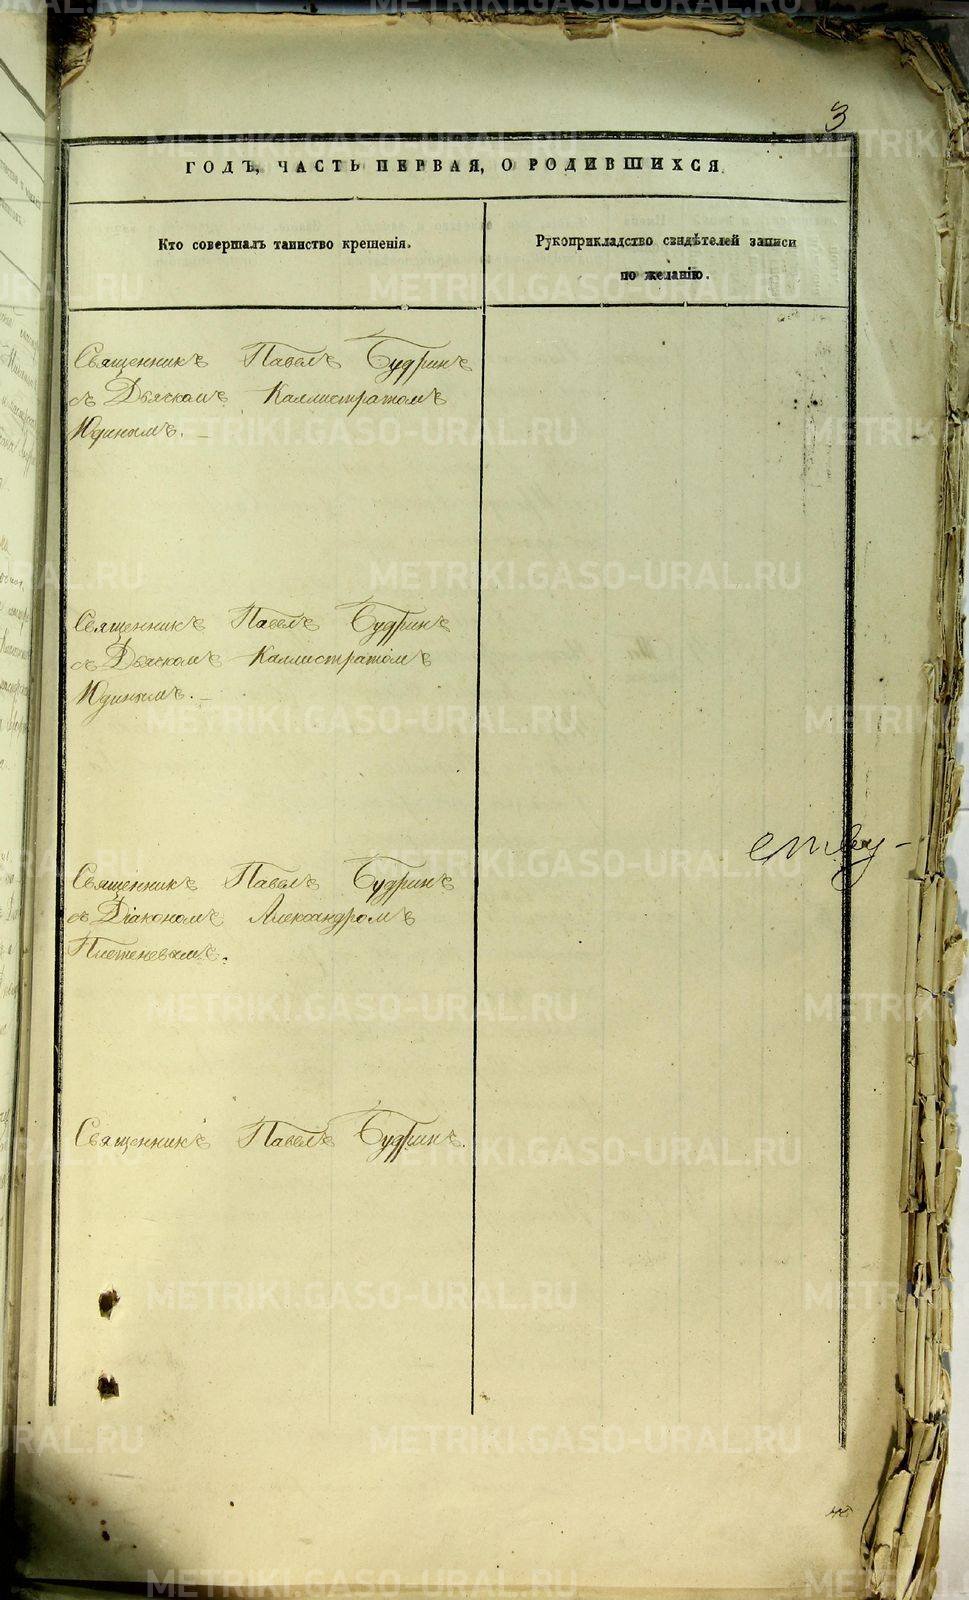 3
ГОДЪ, ЧАСТЬ ПЕРВАЯ, О РОДИВШИХСЯ.
Кто совершалъ таинство крещенія.
Рукоприкладство свидѣтелей записи
по желанію.
Священникъ Павелъ Будринъ
съ Дьячкомъ Каллистратомъ
Юдинымъ.
Священникъ Павелъ Будринъ
съ Дьячкомъ Каллистратомъ
Юдинымъ.
Священникъ Павелъ Будринъ
съ Діакономъ Александромъ
Плетеневымъ.
Священникъ Павелъ Будринъ.
METRIKI.GASO-URAL.RU